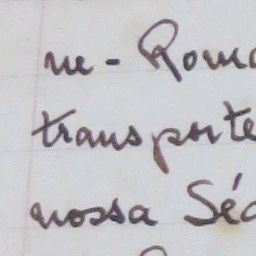 ne - Roma
transporte
nossa Séc